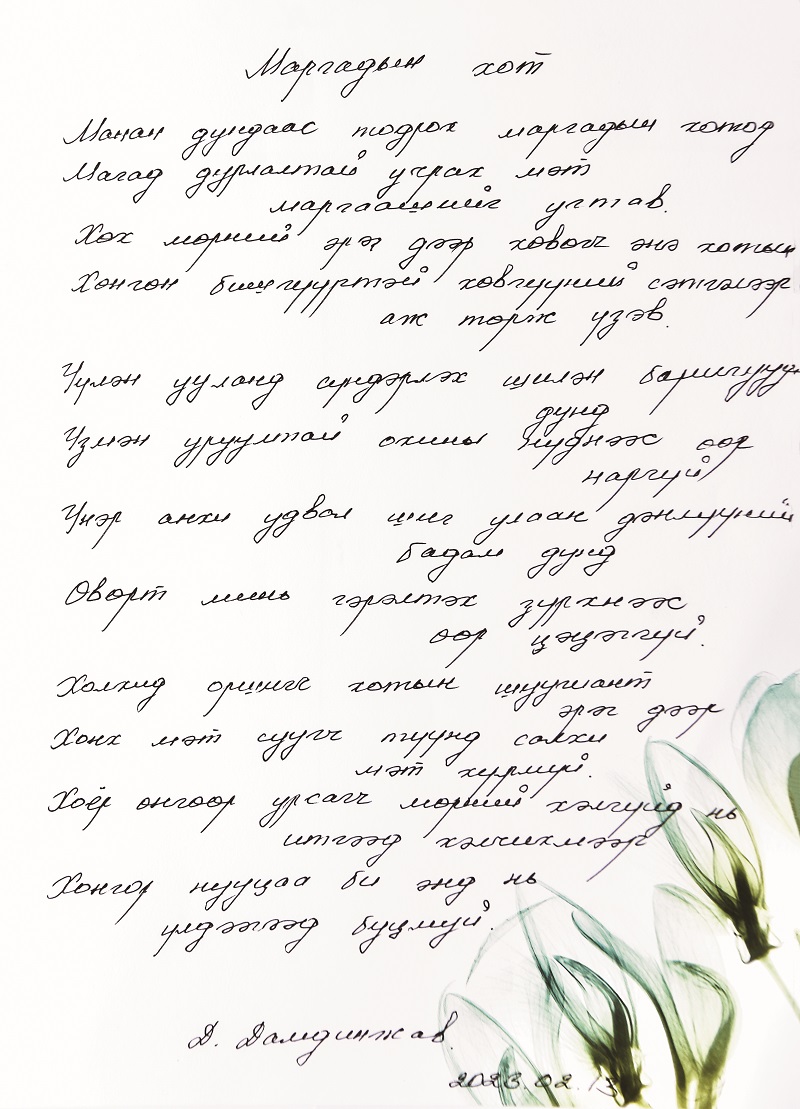 Маргадын хот
Манан дундаас тодрох маргадын хотод
Магад дурламтай учрах мэт
маргаашийг угтав.
Хөх мөрний эрэг дээр хөвөгч энэ хотын
Хөнгөн бишгүүртэй хөвгүүний сэтгэлээр
аж төрж үзэв.
Үүлэн ууланд сүндэрлэх шилэн барилгууд
дунд
Үзмэн урууltай охины нүднээс өөр
наргүй
Үнэр анхи удвал шиг улаан дэнлүүний
бадам дунд
Өвөрт минь гэрэлтэх зүрхнээс
өөр цэцэггүй.
Холхид оршигч хотын шуугиант
эрэг дээр
Хонх мэт суугч түүнд салхи
мэт хүрмүй.
Хоёр өнгөөр урсагч мөрний хэлгүйд нь
итгээд хэлчихмээр
Хонгор нууцаа би энд нь
үлдээгээд буцмуй.
Д. Дамдинжав.
2023.02.13